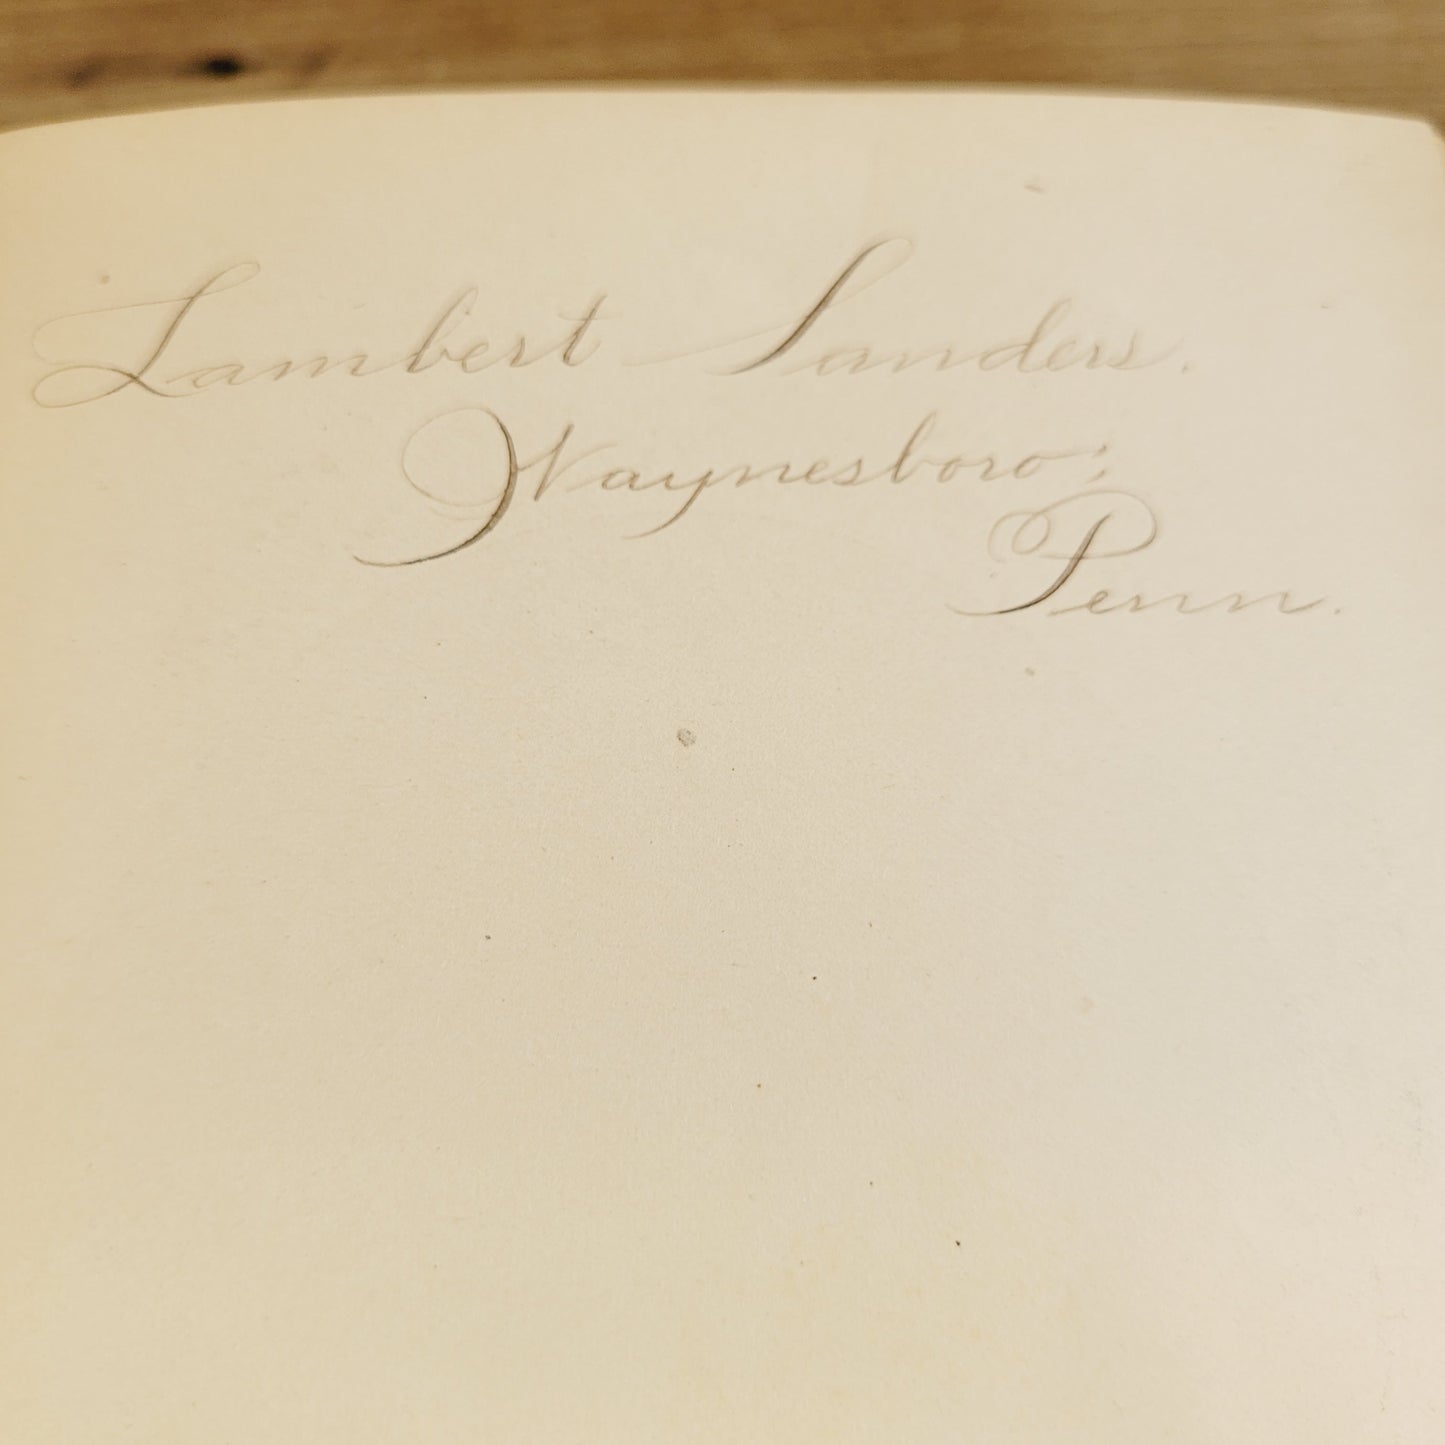 Lambert Sanders.
Waynesboro;
Penn.